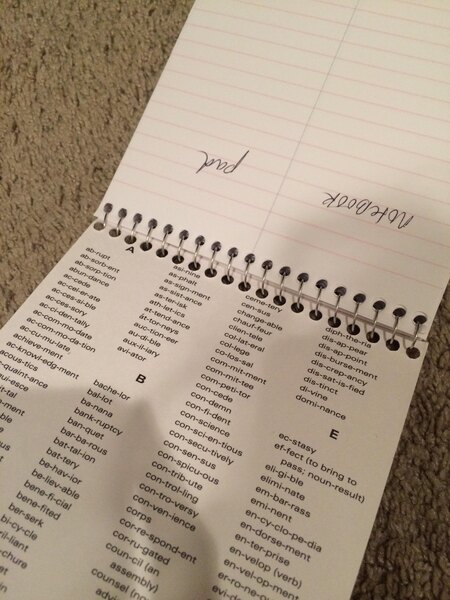 pad
notebook
A
ab-rupt
ab-sorb-ent
ab-sorp-tion
abun-dance
ac-cede
ac-cel-er-ate
ac-ces-si-ble
ac-ces-sory
ac-ci-den-tally
ac-com-mo-date
ac-com-mo-da-tion
ac-cu-mu-late
achieve-ment
ac-knowledg-ment
acous-tics
quaint-ance
ui-esce
asi-nine
as-phalt
as-sign-ment
as-sist-ance
as-ter-isk
ath-let-ics
at-tend-ance
at-tor-neys
auc-tion-eer
au-di-ble
aux-il-iary
avi-ator
B
bache-lor
bal-lot
ba-nana
bank-ruptcy
ban-quet
bar-ba-rous
bat-tal-ion
bat-tery
be-hav-ior
be-liev-able
bene-fi-cial
bene-fited
ber-serk
bi-cy-cle
bril-liant
chure
ceme-tery
cen-sus
change-able
chauf-feur
clien-tele
col-lat-eral
col-lege
co-los-sal
com-mit-ment
com-mit-tee
com-peti-tor
con-cede
con-demn
con-fi-dent
con-science
con-sci-en-tious
con-secu-tively
con-sen-sus
con-spicu-ous
con-trib-ute
con-trol-ling
con-tro-versy
con-ven-ience
corps
cor-re-spond-ent
cor-ru-gated
coun-cil (an
assembly)
counsel
diph-the-ria
dis-ap-pear
dis-ap-point
dis-burse-ment
dis-crep-ancy
dis-sat-is-fied
dis-tinct
di-vine
domi-nance
E
ec-stasy
ef-fect (to bring to
pass; noun-result)
eli-gi-ble
elimi-nate
em-bar-rass
emi-nent
en-cy-clo-pe-dia
en-dorse-ment
en-ter-prise
en-velop (verb)
en-vel-op-ment
er-ro-ne-o